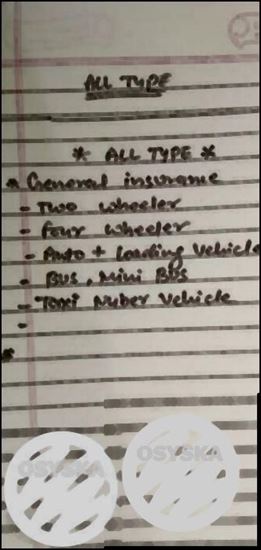 ALL TYPE
* ALL TYPE *
* General insurame
- Two wheeler
- Four wheeler
- Auto + Loading Vehicle
- BUS, Mini BUS
- Taxi Nuber Vehicle
-
*
OSYSKA
OSYSKA